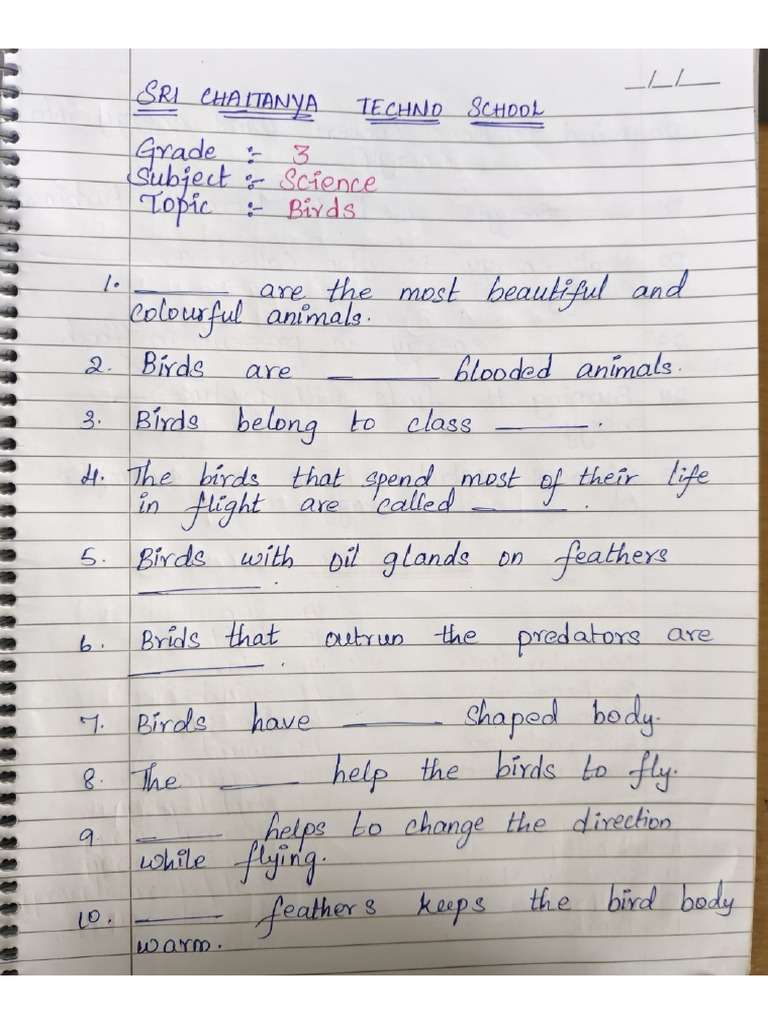 _/_/_
SRI CHAITANYA TECHNO SCHOOL
Grade :- 3
Subject :- Science
Topic :- Birds
1. ______ are the most beautiful and
colourful animals.
2. Birds are ______ blooded animals.
3. Birds belong to class ______.
4. The birds that spend most of their life
in flight are called ______.
5. Birds with oil glands on feathers
______.
6. Brids that outrun the predators are
______.
7. Birds have ______ shaped body.
8. The ______ help the birds to fly.
9. ______ helps to change the direction
while flying.
10. ______ feathers keeps the bird body
warm.